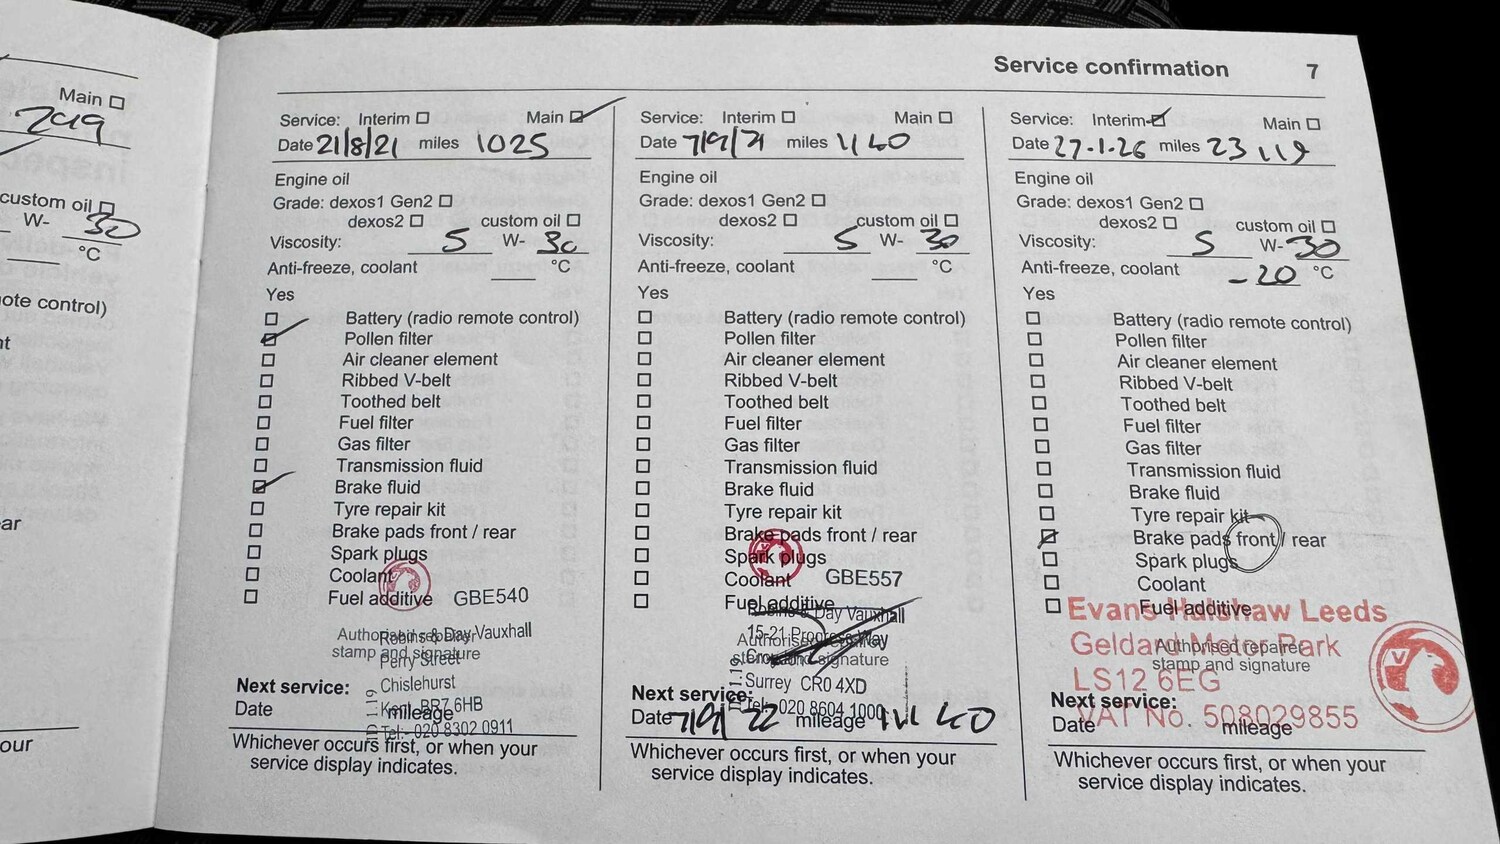 Main
299
custom oil
W- 30
°C
ote control)
nt
ar
our
Service confirmation 7
Service: Interim Main
Date 21/8/21 miles 1025
Engine oil
Grade: dexos1 Gen2
dexos2 custom oil
Viscosity: 5 W- 30
Anti-freeze, coolant °C
Yes
Battery (radio remote control)
Pollen filter
Air cleaner element
Ribbed V-belt
Toothed belt
Fuel filter
Gas filter
Transmission fluid
Brake fluid
Tyre repair kit
Brake pads front / rear
Spark plugs
Coolant
Fuel additive GBE540
Authorised repairer
stamp and signature
Robins & Day Vauxhall
Perry Street
Chislehurst
Kent BR7 6HB
Tel:- 020 8302 0911
Next service:
Date mileage
Whichever occurs first, or when your
service display indicates.
Service: Interim Main
Date 7/9/21 miles 1140
Engine oil
Grade: dexos1 Gen2
dexos2 custom oil
Viscosity: 5 W- 30
Anti-freeze, coolant °C
Yes
Battery (radio remote control)
Pollen filter
Air cleaner element
Ribbed V-belt
Toothed belt
Fuel filter
Gas filter
Transmission fluid
Brake fluid
Tyre repair kit
Brake pads front / rear
Spark plugs
Coolant GBE557
Fuel additive
Robins & Day Vauxhall
15-21 Progress Way
Authorised repairer
stamp and signature
Surrey CR0 4XD
Tel:- 020 8604 1000
Next service:
Date 7/9/22 mileage
Whichever occurs first, or when your
service display indicates.
Service: Interim Main
Date 27-1-26 miles 23 119
Engine oil
Grade: dexos1 Gen2
dexos2 custom oil
Viscosity: 5 W- 30
Anti-freeze, coolant -20 °C
Yes
Battery (radio remote control)
Pollen filter
Air cleaner element
Ribbed V-belt
Toothed belt
Fuel filter
Gas filter
Transmission fluid
Brake fluid
Tyre repair kit
Brake pads front / rear
Spark plugs
Coolant
Fuel additive
Evans Halshaw Leeds
Geldard Motor Park
Authorised repairer
stamp and signature
LS12 6EG
VAT No. 508029855
Next service:
Date mileage
Whichever occurs first, or when your
service display indicates.